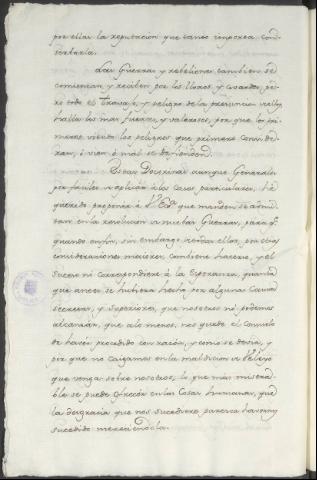 por ellas la reputacion que tanto importa con-
servarla.
Las Guerras y rebeliones tambien se
comienzan y resisten por los llanos, y covardes, pe-
ro todo el trabajo, y peligro de la prevencion
hallas los mas fuertes, y valerosos, por que los pri-
meros vieron los peligros que primero consi
ran, i vien o mas se defienden.
Estas Doctrinas aunque Generales
por faciles i aplicar à los casos particulares, hè
querido proponer à V. Exª que manden se admi-
tan en la revolucion de nuestras Guerras, para q.
quando en fin, sin embargo de todas ellas, por otras
consideraciones maiores, combiene hacerse, y el
suceso nò correspondiere à la esperanza, quanto
que antes se hubiera hecho por algunas causas
secretas, y superiores, que nosotros nò podemos
alcanzar, que alo menos, nos quede el consuelo
de haver procedido con razon, y como se devia, y
por que no caigamos en la maldicion de Veleyo
que venga sobre nosotros, lo que mas misera-
ble se puede ofrecer en las Cosas humanas, que
la desgracia que nos sucediere, parezca havernos
sucedido mereciendola.